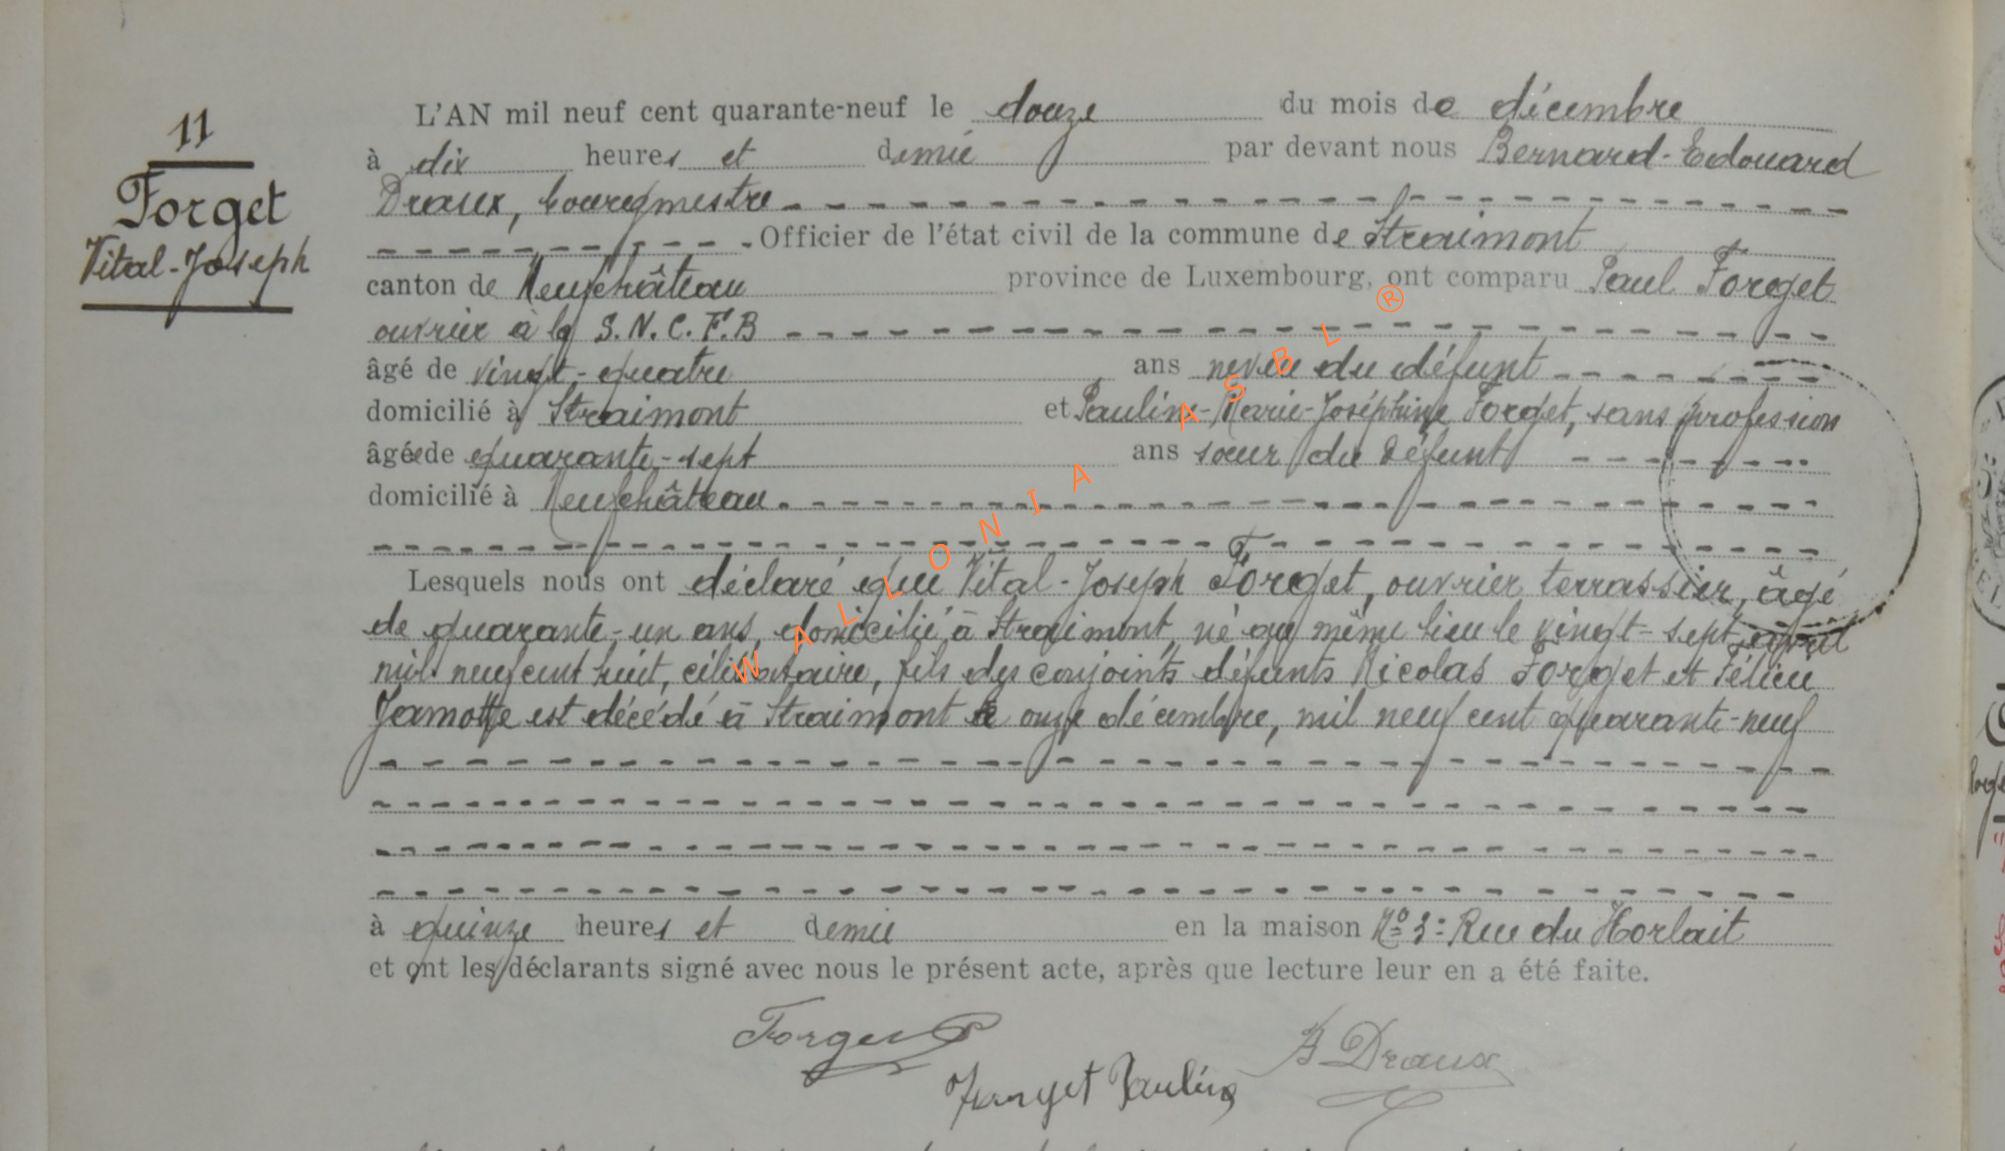 11
Forget
Vital-Joseph
L'AN mil neuf cent quarante-neuf le douze du mois de décembre
à dix heures et demie par devant nous Bernard-Edouard
Draux, bourgmestre
Officier de l'état civil de la commune de Straimont
canton de Neufchâteau province de Luxembourg, ont comparu Paul Forget
ouvrier à la S.N.C.F.B
âgé de vingt-quatre ans neveu du défunt
domicilié à Straimont et Pauline-Marie-Joséphine Forget, sans profession
âgée de quarante-sept ans soeur du défunt
domicilié à Neufchâteau
Lesquels nous ont déclaré que Vital-Joseph Forget, ouvrier terrassier, âgé
de quarante-un ans, domicilié à Straimont, né au même lieu le vingt-sept avril
mil neuf cent huit, célibataire, fils des conjoints défunts Nicolas Forget et Félicie
Jamotte est décédé à Straimont le onze décembre, mil neuf cent quarante-neuf
à quinze heures et demie en la maison Nº 3: Rue du Horlait
et ont les déclarants signé avec nous le présent acte, après que lecture leur en a été faite.
Forget P
B Draux
Forget Pauline
WALLONIA ASBL ®